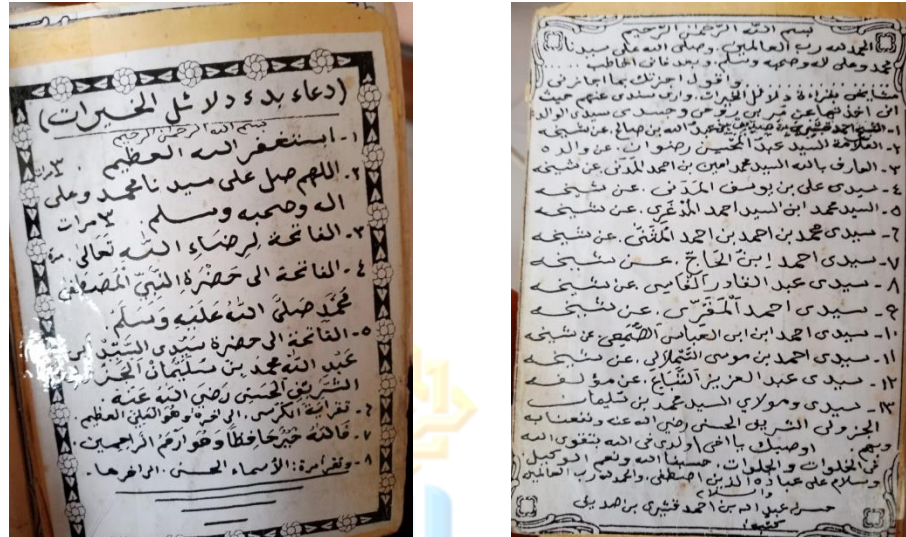 (دعاء بدء دلائل الخيرات)
بسم الله الرحمن الرحيم
١- استغفر الله العظيم ٣ مرات
٢- اللهم صل على سيدنا محمد وعلى
اله وصحبه وسلم ٣ مرات
٣- الفاتحة لِرِضَاءِ اللهِ تَعَالى
٤- الفاتحة الى حَضْرَةِ النَّبِيِّ الْمُصْطَفٰى
مُحَمَّدٍ صَلَّى اللهُ عَلَيْهِ وَسَلَّمَ.
٥- الفَاتحة الى حضرة سَيِّدِى السَيِّد
عَبْدِ اللهِ محمد بن سُلَيْمَانَ الْجَزُ
الشَّرِيْفِ الْحَسَنِى رَضِيَ اللهُ عَنْهُ
تقرأ آية الكرسى الى اخره وهو العلي العظيم.
٧- فَاللهُ خَيْرٌ حَافِظًا وَهُوَ اَرْحَمُ الرَّاحِمِيْنَ.
٨- الأسماء الحسنى. الى اخرها.
بسم الله الرحمن الرحيم
الحمد لله رب العالمين. وصلى الله على سيدنا
محمد وعلى اله وصحبه وسلم. وبعد فان الطالب
واقول اجزتك بما اجازنى
مشايخى بقراءة دلائل الخيرات. وارى سندى عنهم حيث
انى اخذتها عن مربى روحى وجسدى سيدى الوالد
١- الشيخ عبد الله بن صالح. عن شيخه
٢- العلامة السيد عبد المحسن رضوان. عن والده
٣- العارف بالله السيد محمد امين بن احمد المدنى عن شيخه
٤- سيدى على بن يوسف المَدَنى. عن شيخه
٥- السيد محمد ابن السيد احمد المدْغَرِى. عن شيخه
٦- سيدى محمد بن احمد بن احمد المُثَنَّى. عن شيخه
٧- سيدى احمد اِبن الحَاجّ. عن شيخه
٨- سيدى عبد القادر الفَاسِى. عن شيخه
٩- سيدى احمد المَقَرِّى. عن شيخه
١٠- سيدى احمد ابن ابى العباس الصُّمَعِى. عن شيخه
١١- سيدى احمد بن موسى السِّمْلالى. عن شيخه
١٢- سيدى عبد العزيز التَّبَّاع. عن مؤلفه
١٣- سيدى ومولاي السيد محمد بن سليمان
الجزولى الشريف الحسنى رضي الله عنه ونفعنا به
وبهم. اوصيك يا اخى اولدى فى الله بتقوى الله
فى الخلوات و الجلوات. حسبنا الله ونعم الوكيل
وسلام على عباده الذين اصطفى. والحمد لله رب العالمين
والسلام
عبد الله بن احمد